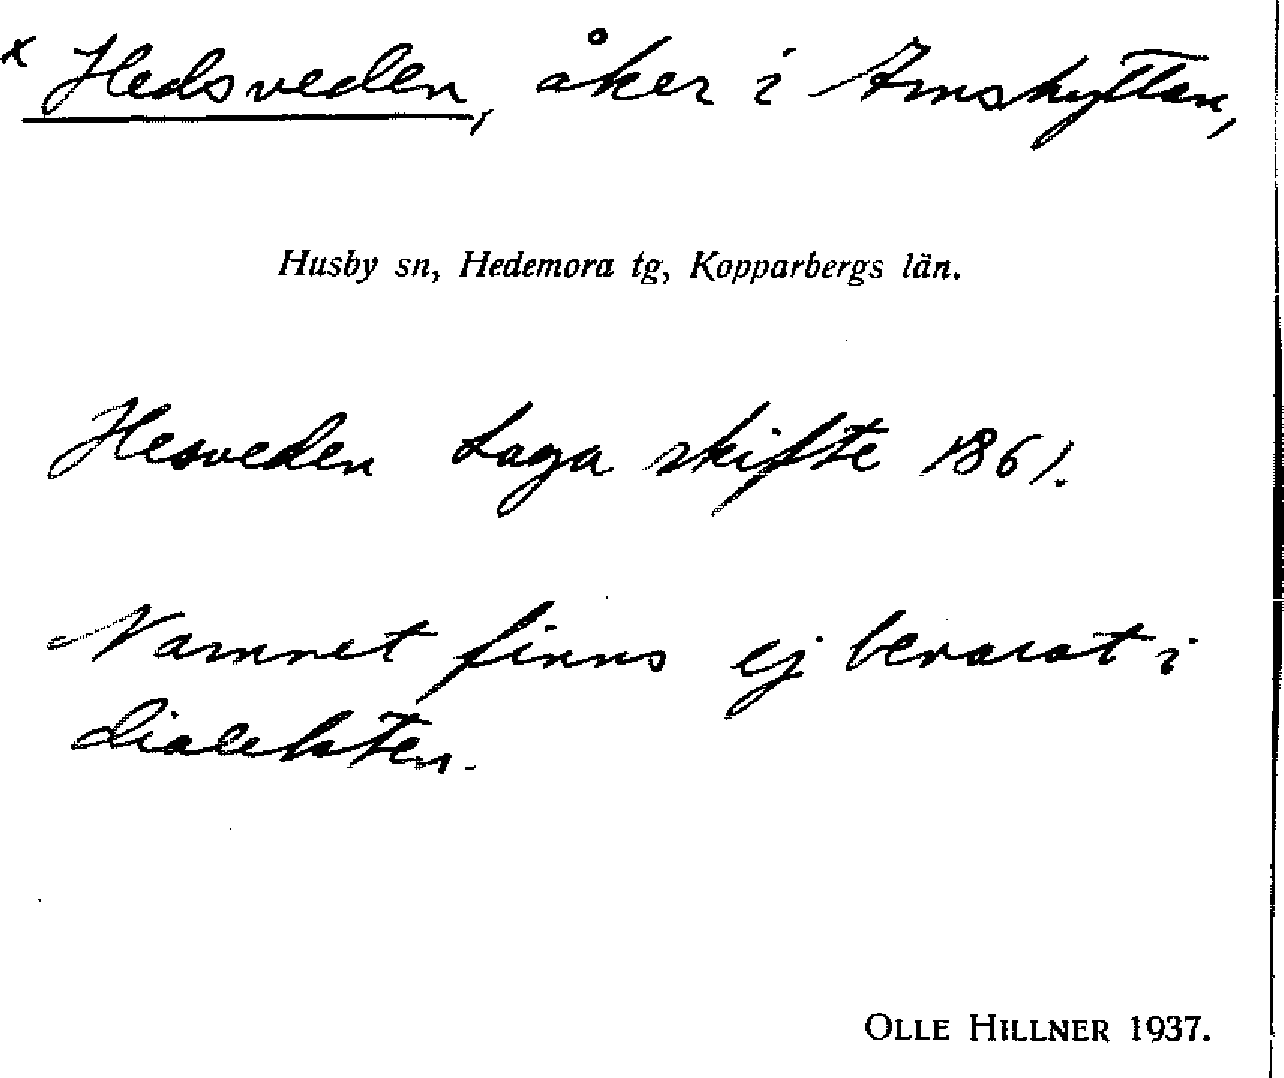 x Hedsveden, åker i Arnshyttan,
Husby sn, Hedemora tg, Kopparbergs län.
Hesveden Laga skifte 1861.
Namnet finns ej bevarat i
dialekten.
OLLE HILLNER 1937.